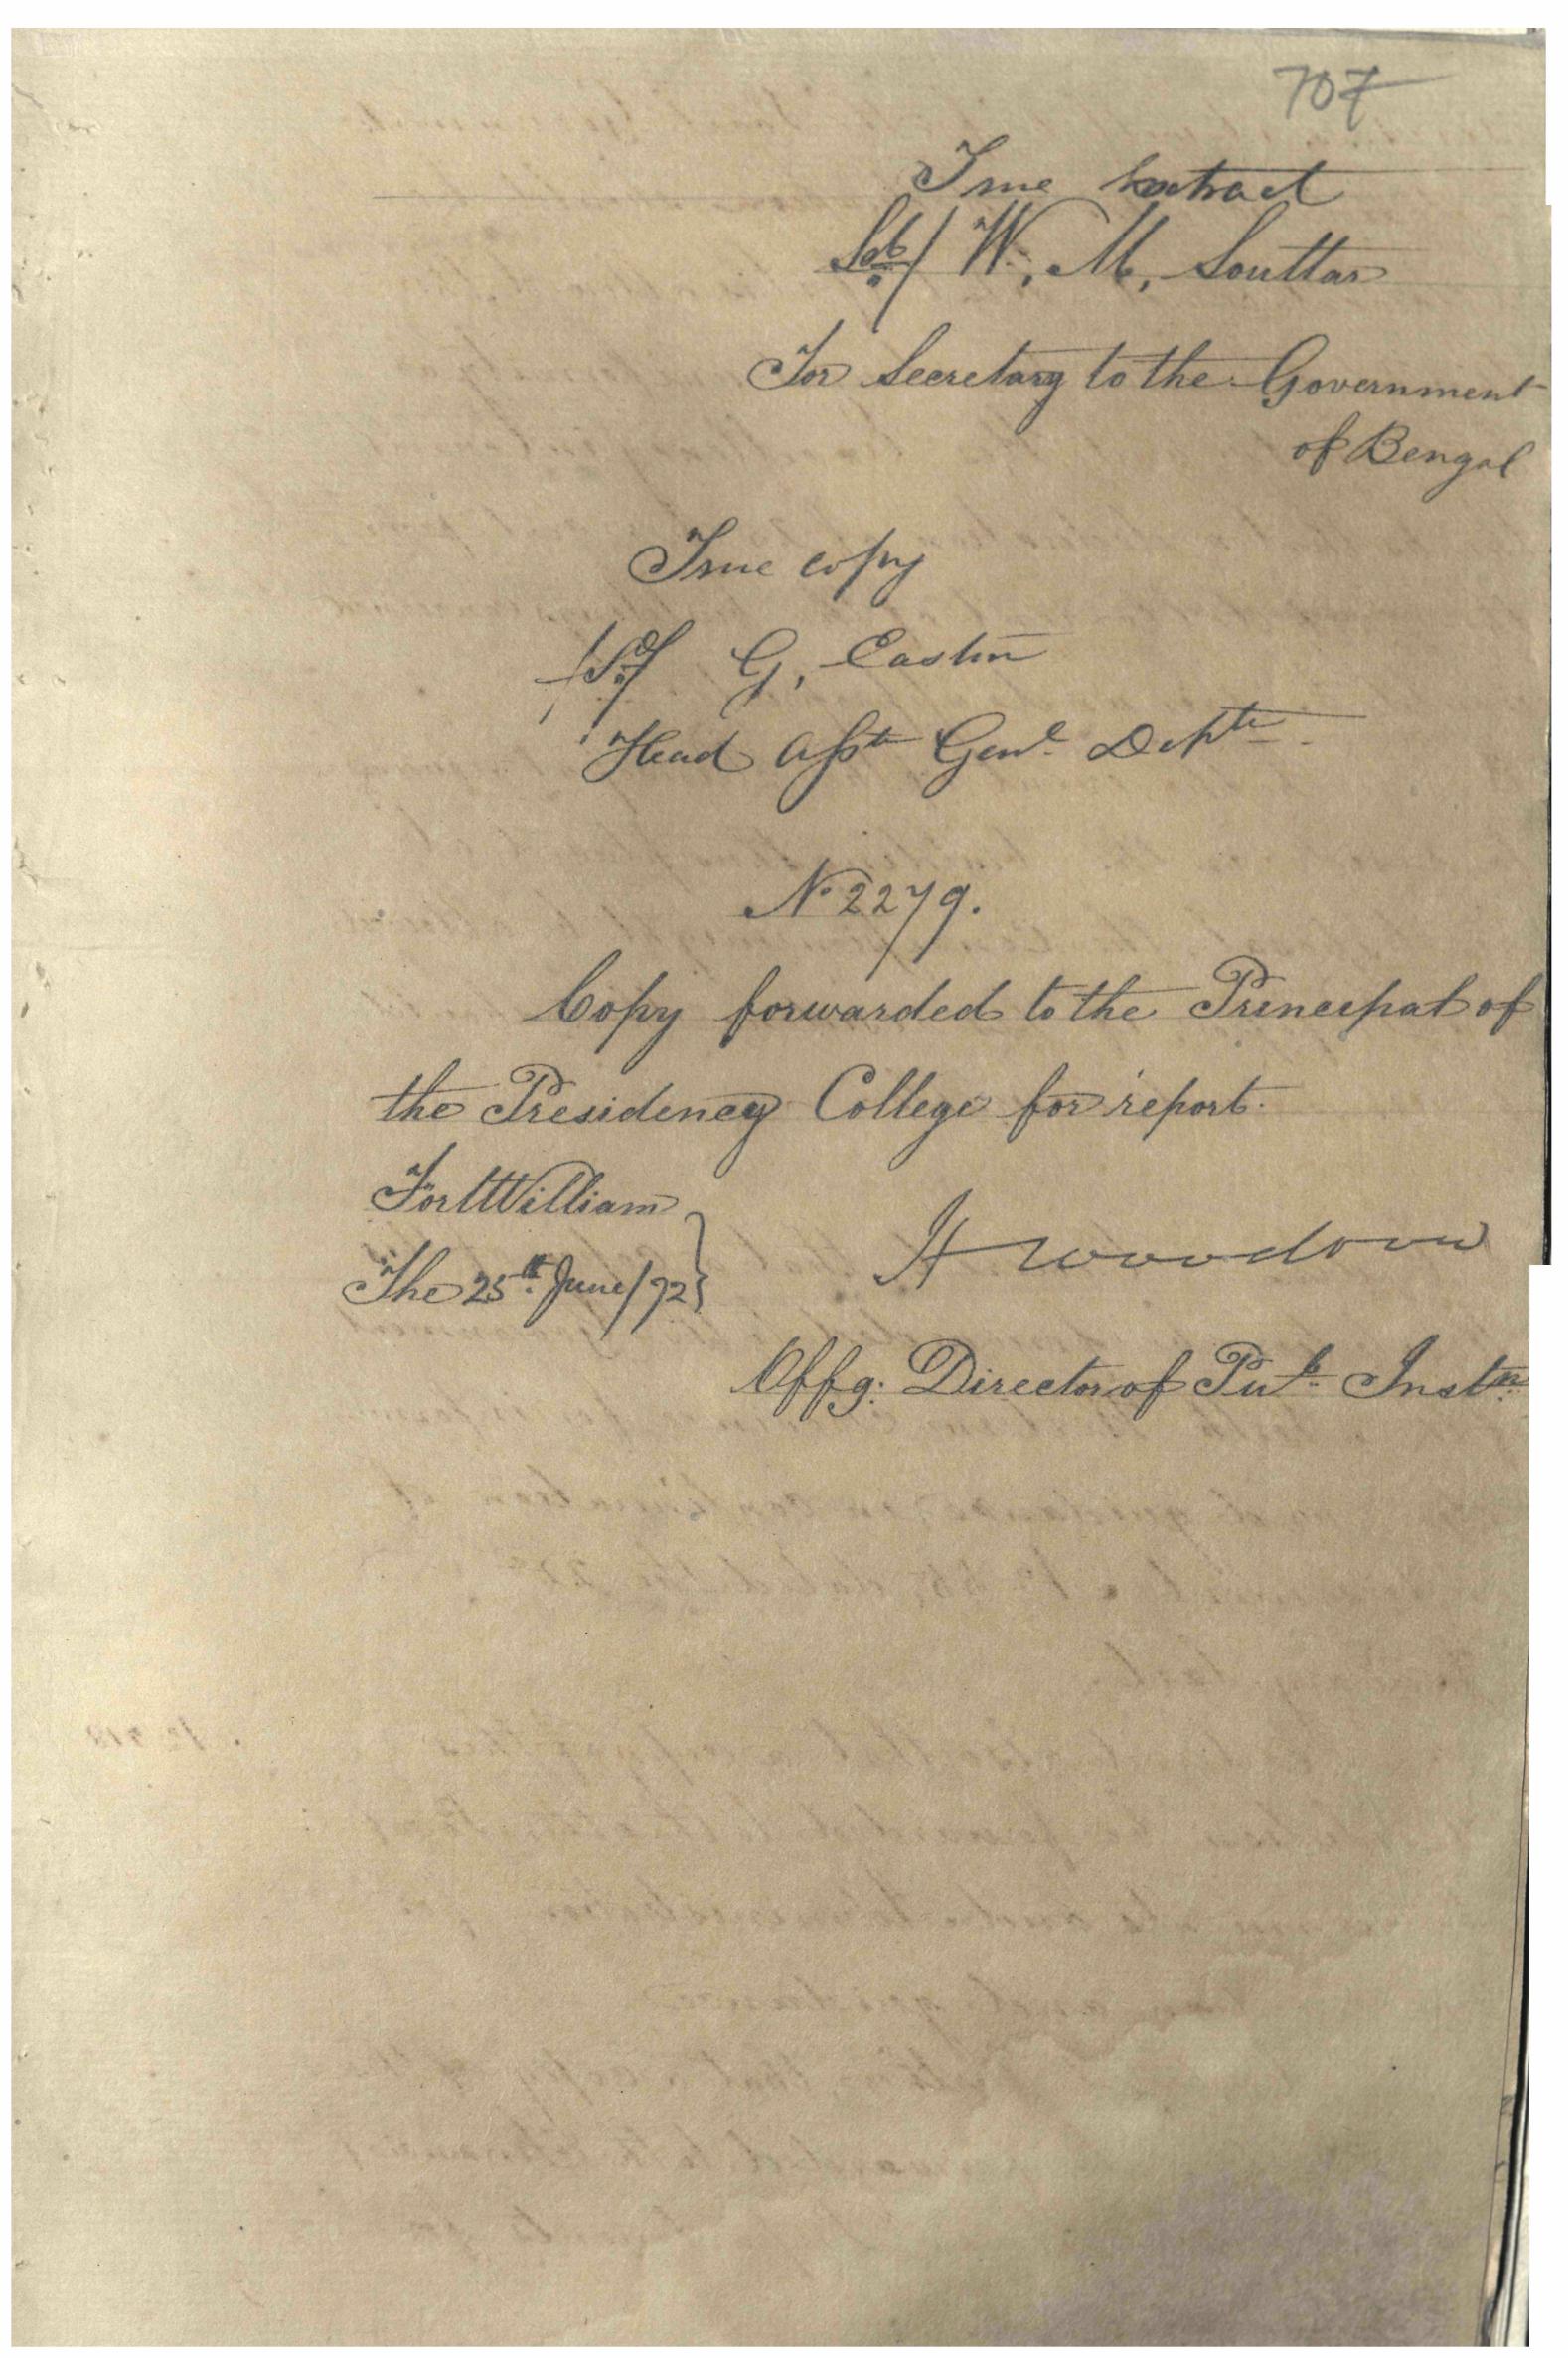 707
True Extract
Sd/ W. M, Souttar
For Secretary to the Government
of Bengal
True copy
/Sd/ G, Eastin
Head Asst Genl Deptt
No 2279.
Copy forwarded to the Principal of
the Presidency College for report.
Fort William
The 25th June/72
H Woodrow
Offg: Director of Pub Instn.